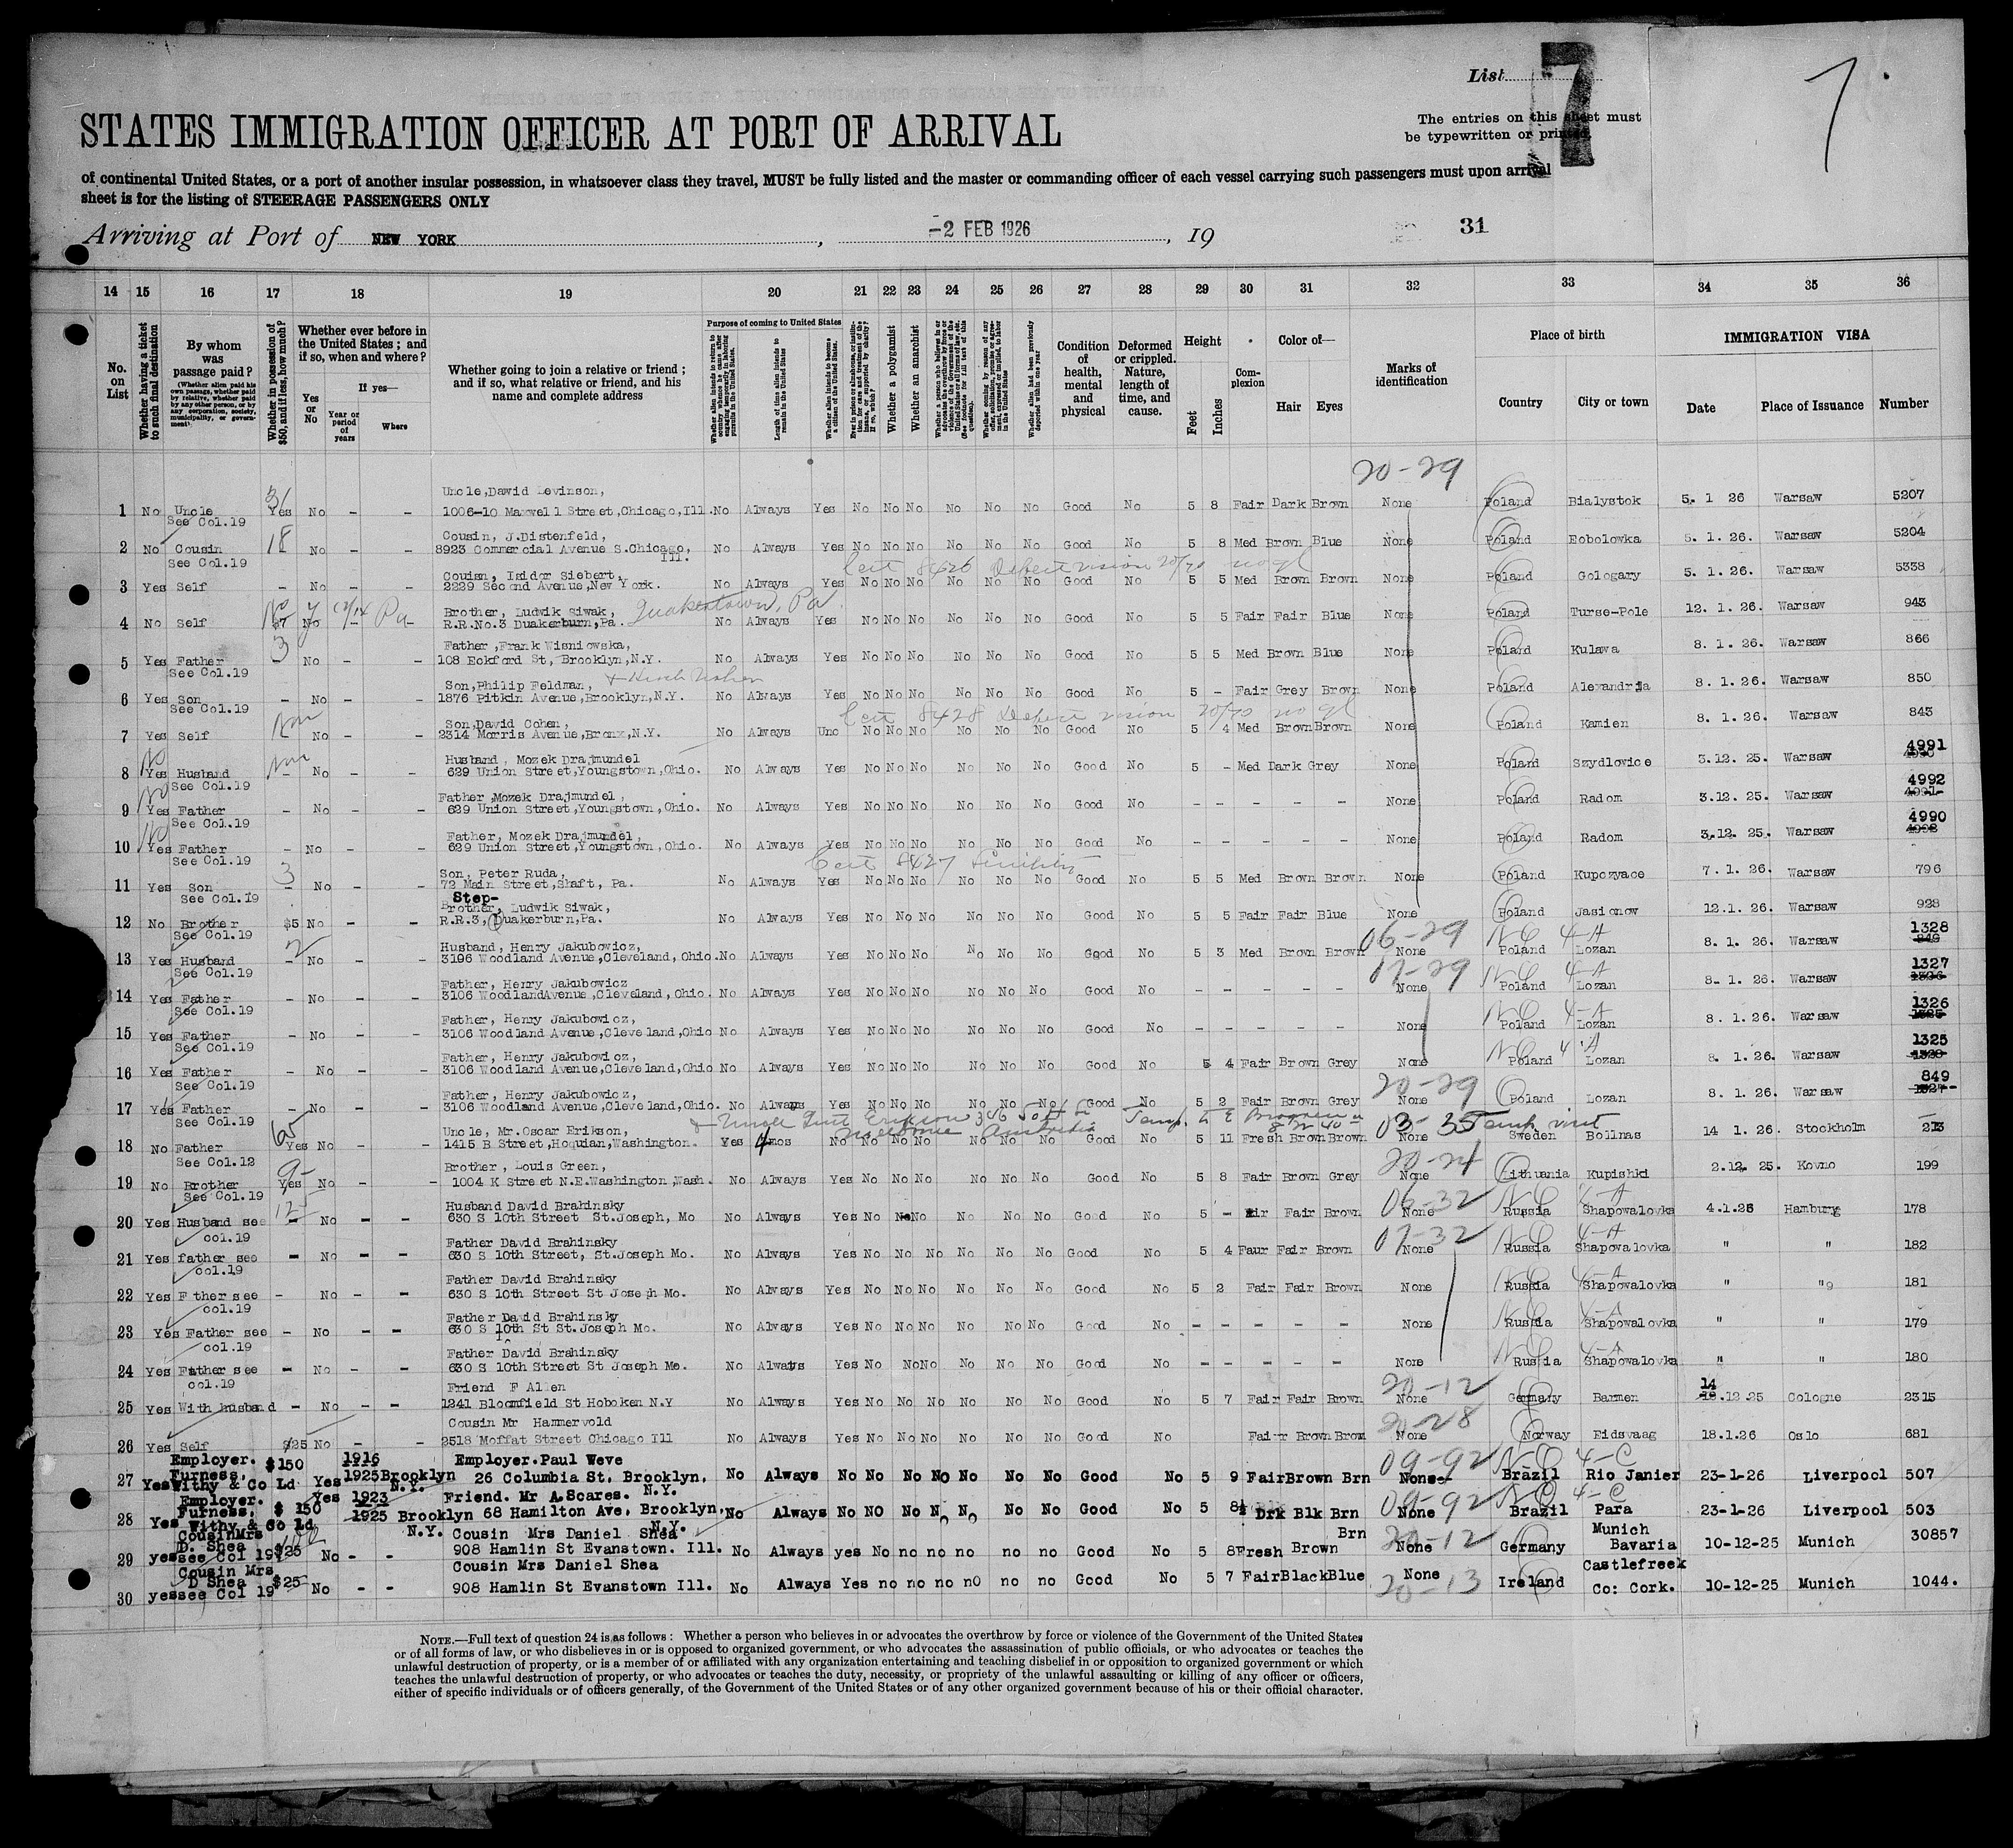 List 7
7
The entries on this sheet must
be typewritten or printed.
STATES IMMIGRATION OFFICER AT PORT OF ARRIVAL
of continental United States, or a port of another insular possession, in whatsoever class they travel, MUST be fully listed and the master or commanding officer of each vessel carrying such passengers must upon arrival
sheet is for the listing of STEERAGE PASSENGERS ONLY
Arriving at Port of NEW YORK, -2 FEB 1926, 19 31
14 15 16 17 18 19 20 21 22 23 24 25 26 27 28 29 30 31 32 33 34 35 36
No. on List
Whether having a ticket to such final destination
By whom was passage paid?
(Whether alien paid his own passage, whether paid by relative, whether paid by any other person, or by any corporation, society, municipality, or government)
Whether in possession of $50, and if less, how much?
Whether ever before in the United States; and if so, when and where?
Yes or No
If yes—
Year or period of years
Where
Whether going to join a relative or friend; and if so, what relative or friend, and his name and complete address
Purpose of coming to United States
Length of time alien intends to remain in the United States
Whether alien intends to become a citizen of the United States.
Whether a polygamist
Whether an anarchist
Condition of health, mental and physical
Deformed or crippled. Nature, length of time, and cause.
Height
Feet
Inches
Complexion
Color of—
Hair Eyes
Marks of identification
Place of birth
Country
City or town
IMMIGRATION VISA
Date
Place of Issuance
Number
20-29
Uncle,Dawid Levinson,
1 No Uncle Yes No - - 1006-10 Maxwell Street,Chicago,Ill. No Always Yes No No No No No No Good No 5 8 Fair Dark Brown None Poland Bialystok 5. 1 26 Warsaw 5207
See Col.19
Cousin, J.Distenfeld,
2 No Cousin 18 No - - 8923 Commercial Avenue S.Chicago, Ill. No Always Yes No No No No No No Good No 5 8 Med Brown Blue None Poland Eobolowka 5. 1. 26. Warsaw 5204
See Col.19
Cert 8426 Defect vision 20/70 no gl
Couisn, Isidor Siebert,
3 Yes Self - No - - 2229 Second Avenue,New York. No Always Yes No No No No No No Good No 5 5 Med Brown Brown None Poland Gologary 5. 1. 26. Warsaw 5338
Brother, Ludwik Siwak, Quakertown, Pa.
4 No Self $7 No - - R.R.No.3 Duakerburn,Pa. No Always Yes No No No No No No Good No 5 5 Fair Fair Blue None Poland Turse-Pole 12. 1. 26. Warsaw 943
Father,Frank Wisniowska,
5 Yes Father - No - - 108 Eckford St, Brooklyn,N.Y. No Always Yes No No No No No No Good No 5 5 Med Brown Blue None Poland Kulawa 8. 1. 26. Warsaw 866
See Col.19
Son,Philip Feldman,
6 Yes Son - No - - 1876 Pitkin Avenue,Brooklyn,N.Y. No Always Yes No No No No No No Good No 5 - Fair Grey Brown None Poland Alexandria 8. 1. 26. Warsaw 850
See Col.19
Cert 8428 Defect vision 20/70 no gl
Son,David Cohen,
7 Yes Self - No - - 2314 Morris Avenue,Bronx,N.Y. No Always Unc No No No No No No Good No 5 4 Med Brown Brown None Poland Kamien 8. 1. 26. Warsaw 843
Husband, Mozek Drajmundel
8 Yes Husband - No - - 629 Union Street,Youngstown,Ohio. No Always Yes No No No No No No Good No 5 - Med Dark Grey None Poland Szydlowice 3.12. 25. Warsaw 4991
See Col.19
Father,Mozek Drajmundel,
9 Yes Father - No - - 629 Union Street,Youngstown,Ohio. No Always Yes No No No No No No Good No - - - - - None Poland Radom 3.12. 25. Warsaw 4992
See Col.19
Father, Mozek Drajmundel,
10 Yes Father - No - - 629 Union Street,Youngstown,Ohio. No Always Yes No No No No No No Good No - - - - - None Poland Radom 3.12. 25. Warsaw 4990
See Col.19
Cert 8427 Senility
Son, Peter Ruda,
11 Yes Son - No - - 72 Main Street,Shaft, Pa. No Always Yes No No No No No No Good No 5 5 Med Brown Brown None Poland Kupczyace 7. 1. 26. Warsaw 796
See Col.19
Step-
Brother, Ludwik Siwak,
12 No Brother $5 No - - R.R.3, Duakerburn,Pa. No Always Yes No No No No No No Good No 5 5 Fair Fair Blue None Poland Jasionow 12.1. 26. Warsaw 928
See Col.19
06-29 NC 4-A
Husband, Henry Jakubowicz,
13 Yes Husband - No - - 3196 Woodland Avenue,Cleveland,Ohio. No Always Yes No No No No No No Good No 5 3 Med Brown Brown None Poland Lozan 8. 1. 26. Warsaw 1328
See Col.19
07-29 NC 4-A
Father, Henry Jakubowicz
14 Yes Father - No - - 3106 WoodlandAvenue,Cleveland,Ohio. No Always Yes No No No No No No Good No - - - - - None Poland Lozan 8. 1. 26. Warsaw 1327
See Col.19
NC 4-A
Father, Henry Jakubowicz,
15 Yes Father - No - - 3106 Woodland Avenue,Cleveland,Ohio No Always Yes No No No No No No Good No - - - - - None Poland Lozan 8. 1. 26. Warsaw 1326
See Col.19
NC 4-A
Father, Henry Jakubowicz,
16 Yes Father - No - - 3106 Woodland Avenue,Cleveland,Ohio No Always Yes No No No No No No Good No 5 4 Fair Brown Grey None Poland Lozan 8. 1. 26. Warsaw 1325
See Col.19
20-29
Father, Henry Jakubowicz,
17 Yes Father - No - - 3106 Woodland Avenue,Cleveland,Ohio. No Always Yes No No No No No No Good No 5 2 Fair Brown Grey None Poland Lozan 8. 1. 26. Warsaw 849
See Col.19
03-35 Temp visit
Uncle, Mr.Oscar Erikson,
18 No Father Yes No 1415 B Street,Hoquian,Washington. Yes 4mos No No No No No No Good No 5 11 Fresh Brown Brown None Sweden Bollnas 14 1. 26. Stockholm 213
See Col.12
20-24
Brother, Louis Green,
19 No Brother Yes No - 1004 K Street N.E.Washington,Wash. No Always Yes No No No No No No Good No 5 8 Fair Brown Grey None Lithuania Kupishki 2.12. 25. Kovno 199
See Col.19
06-32 NC 4-A
Husband David Brahinsky
20 Yes Husband see - No - - 630 S 10th Street St.Joseph, Mo No Always Yes No No No No No No Good No 5 - air Fair Brown None Russia Shapowalovka 4.1.26 Hamburg 178
col.19
07-32 NC 4-A
Father David Brahinsky
21 Yes father see - No - - 630 S 10th Street, St.Joseph Mo. No Always Yes No No No No No No Good No 5 4 Faur Fair Brown None Russia Shapowalovka " " 182
col.19
NC 4-A
Father David Brahinsky
22 Yes F ther see - No - - 630 S 10th Street St Joseph Mo. No Always Yes No No No No No No Good No 5 2 Fair Fair Brown None Russia Shapowalovka " " 181
col.19
NC 4-A
Father David Brahinsky
23 Yes Father see - No - - 630 S 10th St St.Joseph Mo. No Always Yes No No No No No No Good No - - - - - None Russia Shapowalovka " " 179
col.19
NC 4-A
Father David Brahinsky
24 Yes Father see - No - - 630 S 10th Street St Joseph Mo. No Always Yes No No No No No No Good No - - - - - None Russia Shapowalovka " " 180
col.19
20-12
Friend F Allen
25 Yes With husband - No - - 1241 Bloomfield St Hoboken N.Y No Always Yes No No No No No No Good No 5 7 Fair Fair Brown None Germany Barmen 14.12 25 Cologne 2315
20-28
Cousin Mr Hammervold
26 Yes Self $25 No - - 2518 Moffat Street Chicago Ill No Always Yes No No No No No No Good No Fair Brown Brown None Norway Eidsvaag 18.1.26 Oslo 681
09-92 NC 4-C
Employer. $150 1916 Employer.Paul Weve
27 Yes Furness, Withy & Co Ld Yes 1925 Brooklyn N.Y. 26 Columbia St. Brooklyn, N.Y. No Always No No No No No No No Good No 5 9 Fair Brown Brn None Brazil Rio Janier 23-1-26 Liverpool 507
09-92 NC 4-C
Employer. $ 150 Yes 1923 Friend. Mr A.Scares.
28 Yes Furness, Withy & Co Ld 1925 Brooklyn N.Y. 68 Hamilton Ave. Brooklyn, N.Y. No Always No No No No No No No Good No 5 8½ Drk Blk Brn None Brazil Para 23-1-26 Liverpool 503
20-12
CousinMrs Cousin Mrs Daniel Shea
29 yes D. Shea see Col 19 $25 No - - 908 Hamlin St Evanstown. Ill. No Always yes No no no no no no Good No 5 8 Fresh Brown Brn None Germany Munich Bavaria 10-12-25 Munich 30857
Cousin Mrs Cousin Mrs Daniel Shea
30 yes D Shea see Col 19 $25 No - - 908 Hamlin St Evanstown Ill. No Always Yes no no no no no no Good No 5 7 Fair Black Blue None Ireland Castlefreek Co: Cork. 10-12-25 Munich 1044.
20-13
NOTE.—Full text of question 24 is as follows: Whether a person who believes in or advocates the overthrow by force or violence of the Government of the United States
or of all forms of law, or who disbelieves in or is opposed to organized government, or who advocates the assassination of public officials, or who advocates or teaches the
unlawful destruction of property, or is a member of or affiliated with any organization entertaining and teaching disbelief in or opposition to organized government or which
teaches the unlawful destruction of property, or who advocates or teaches the duty, necessity, or propriety of the unlawful assaulting or killing of any officer or officers,
either of specific individuals or of officers generally, of the Government of the United States or of any other organized government because of his or their official character.